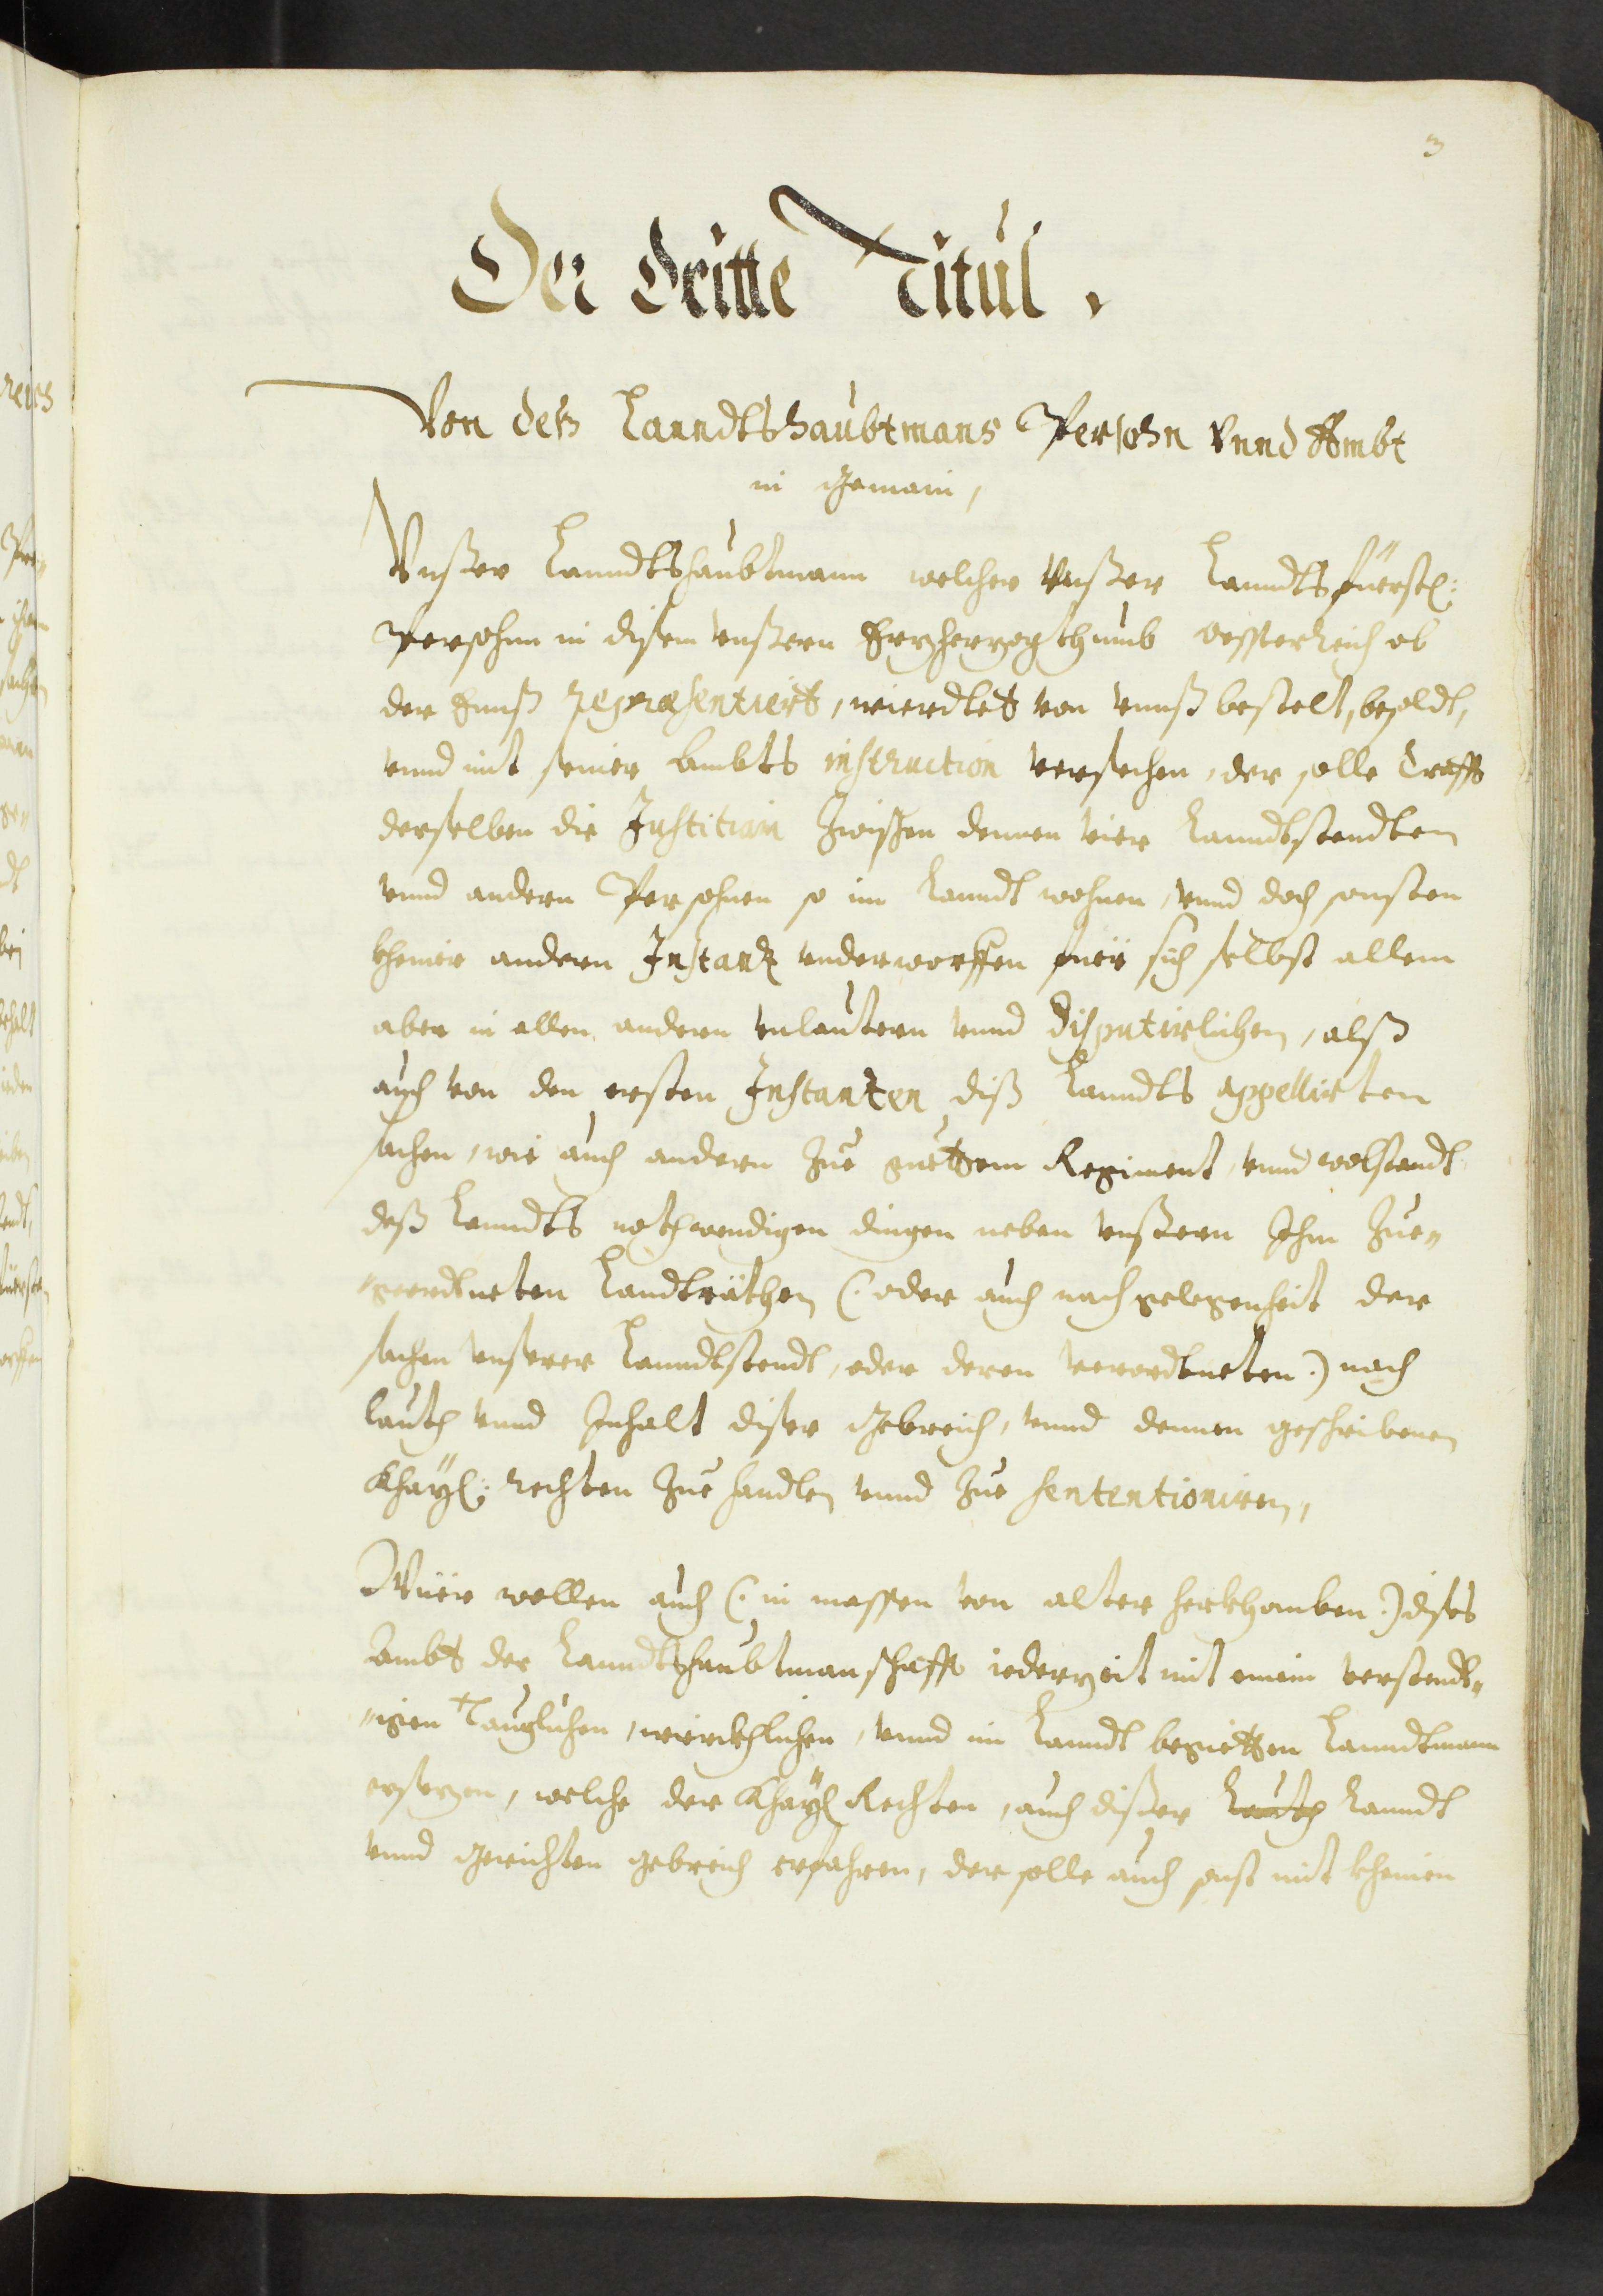 3
Der dritte Titul.
Von deß Lanndtshaubtmans Persohn vnnd Ambt
in Gemain,
Vnßer Lanndtshaubtmann welcher vnßer Lanndtsfüerstl:
Persohnn in disem vnßern Erzherzogthumb Oessterreich ob
der Ennß repræsentiert, wierdtet von vnnß bestelt, besoldt,
vnnd mit seiner Ambts instruction versechen, der solle Crafft
derselben die Justitiam zwischen dennen vier Lanndtstendten
vnnd andern Persohnen so im Lanndt wohnen, vnnd doch sonsten
kheiner andern Instantz vnderworffen füer sich selbst allein
aber in allen andern vnlautern vnnd disputirlichen, alß
auch von den ersten Instantzen diß Lanndts appellirten
sachen, wie auch andern zue guettem Regiment, vnnd wolstandt
deß Lanndts nothwendigen dingen neben vnßern Ihm zue"
"geordtneten Landträthen (: oder auch nach gelegenheit der
sachen vnserer Lanndtstendt, oder deren verordtneten :) nach
lauth vnnd Inhalt diser Gebreich, vnnd dennen geschribenen
Khayl: rechten zue handlen vnnd zue sententioniren,
Wüer wollen auch (: in massen von alter herkhomben :) dises
Ambt der Lanndtshaubtmanschafft iederzeit mit einem verstendt"
"igen Tauglichen, würckhlichen, vnnd im Lanndt begüetten Lanndtmann
ersezen, welche der Khayl Rechten, auch dißer Lauth Lanndt
vnnd Gerichten gebreich erfahren, der solle auch sonst mit kheinen